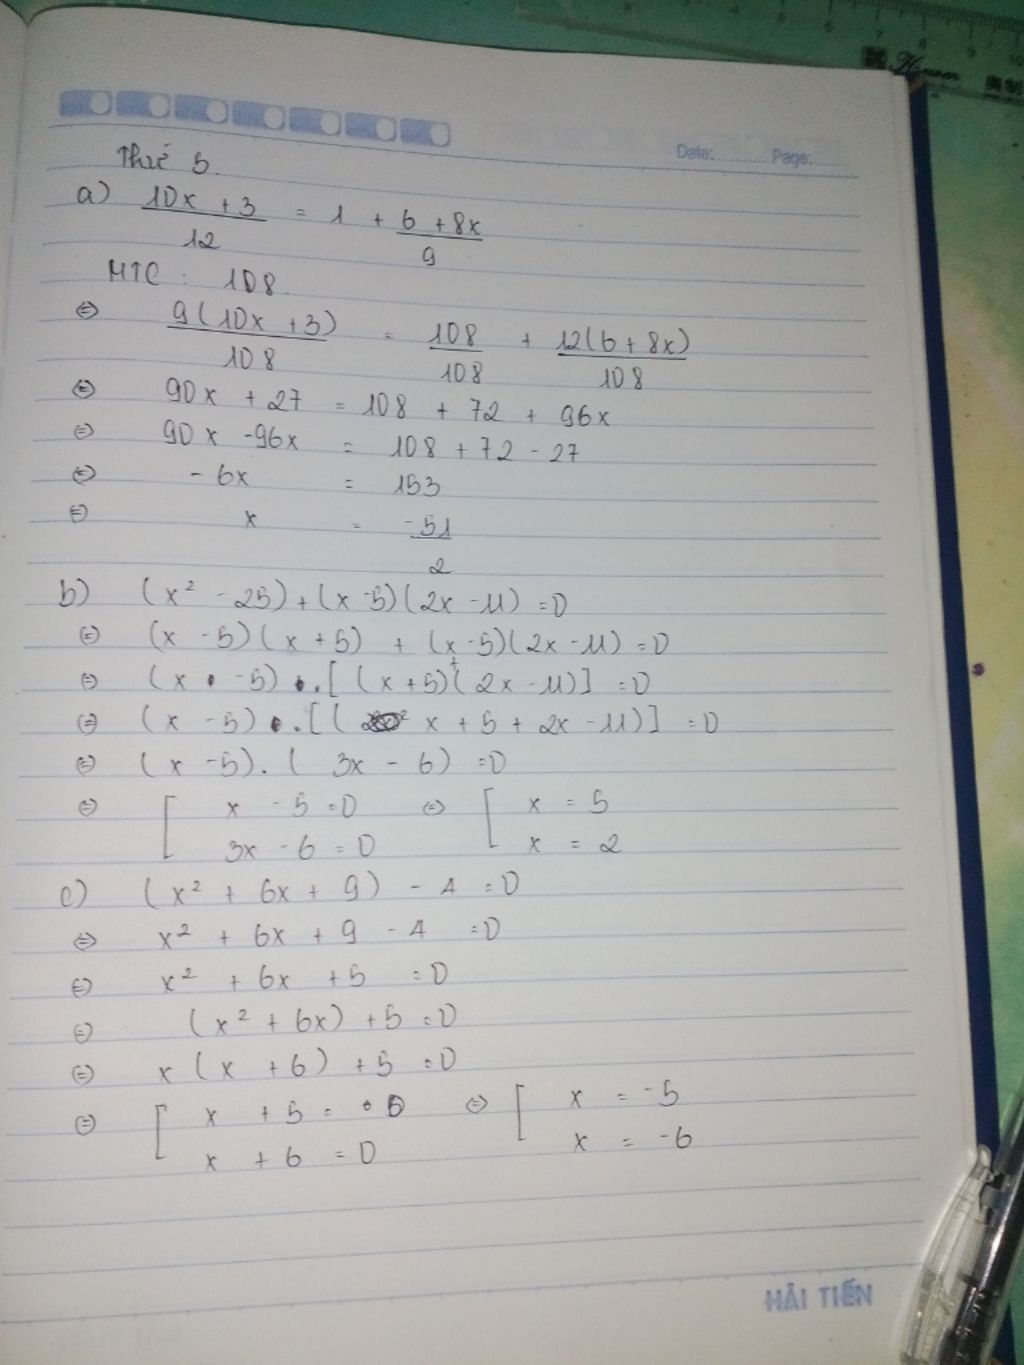 Date: ........... Page: ........
Thứ 5.
a) (10x + 3)/12 = 1 + (6 + 8x)/9
MTC : 108.
⇔ 9(10x + 3)/108 = 108/108 + 12(6 + 8x)/108
⇔ 90x + 27 = 108 + 72 + 96x
⇔ 90x - 96x = 108 + 72 - 27
⇔ - 6x = 153
⇔ x = -51/2
b) (x² - 25) + (x - 5)(2x - 11) = 0
⇔ (x - 5)(x + 5) + (x - 5)(2x - 11) = 0
⇔ (x - 5) . [ (x + 5) + (2x - 11)] = 0
⇔ (x - 5) . [( x + 5 + 2x - 11)] = 0
⇔ (x - 5) . ( 3x - 6) = 0
⇔ [ x - 5 = 0 ⇔ [ x = 5
3x - 6 = 0 x = 2
c) (x² + 6x + 9) - 4 = 0
⇔ x² + 6x + 9 - 4 = 0
⇔ x² + 6x + 5 = 0
⇔ (x² + 6x) + 5 = 0
⇔ x (x + 6) + 5 = 0
⇔ [ x + 5 = 0 ⇔ [ x = -5
x + 6 = 0 x = -6
HẢI TIẾN